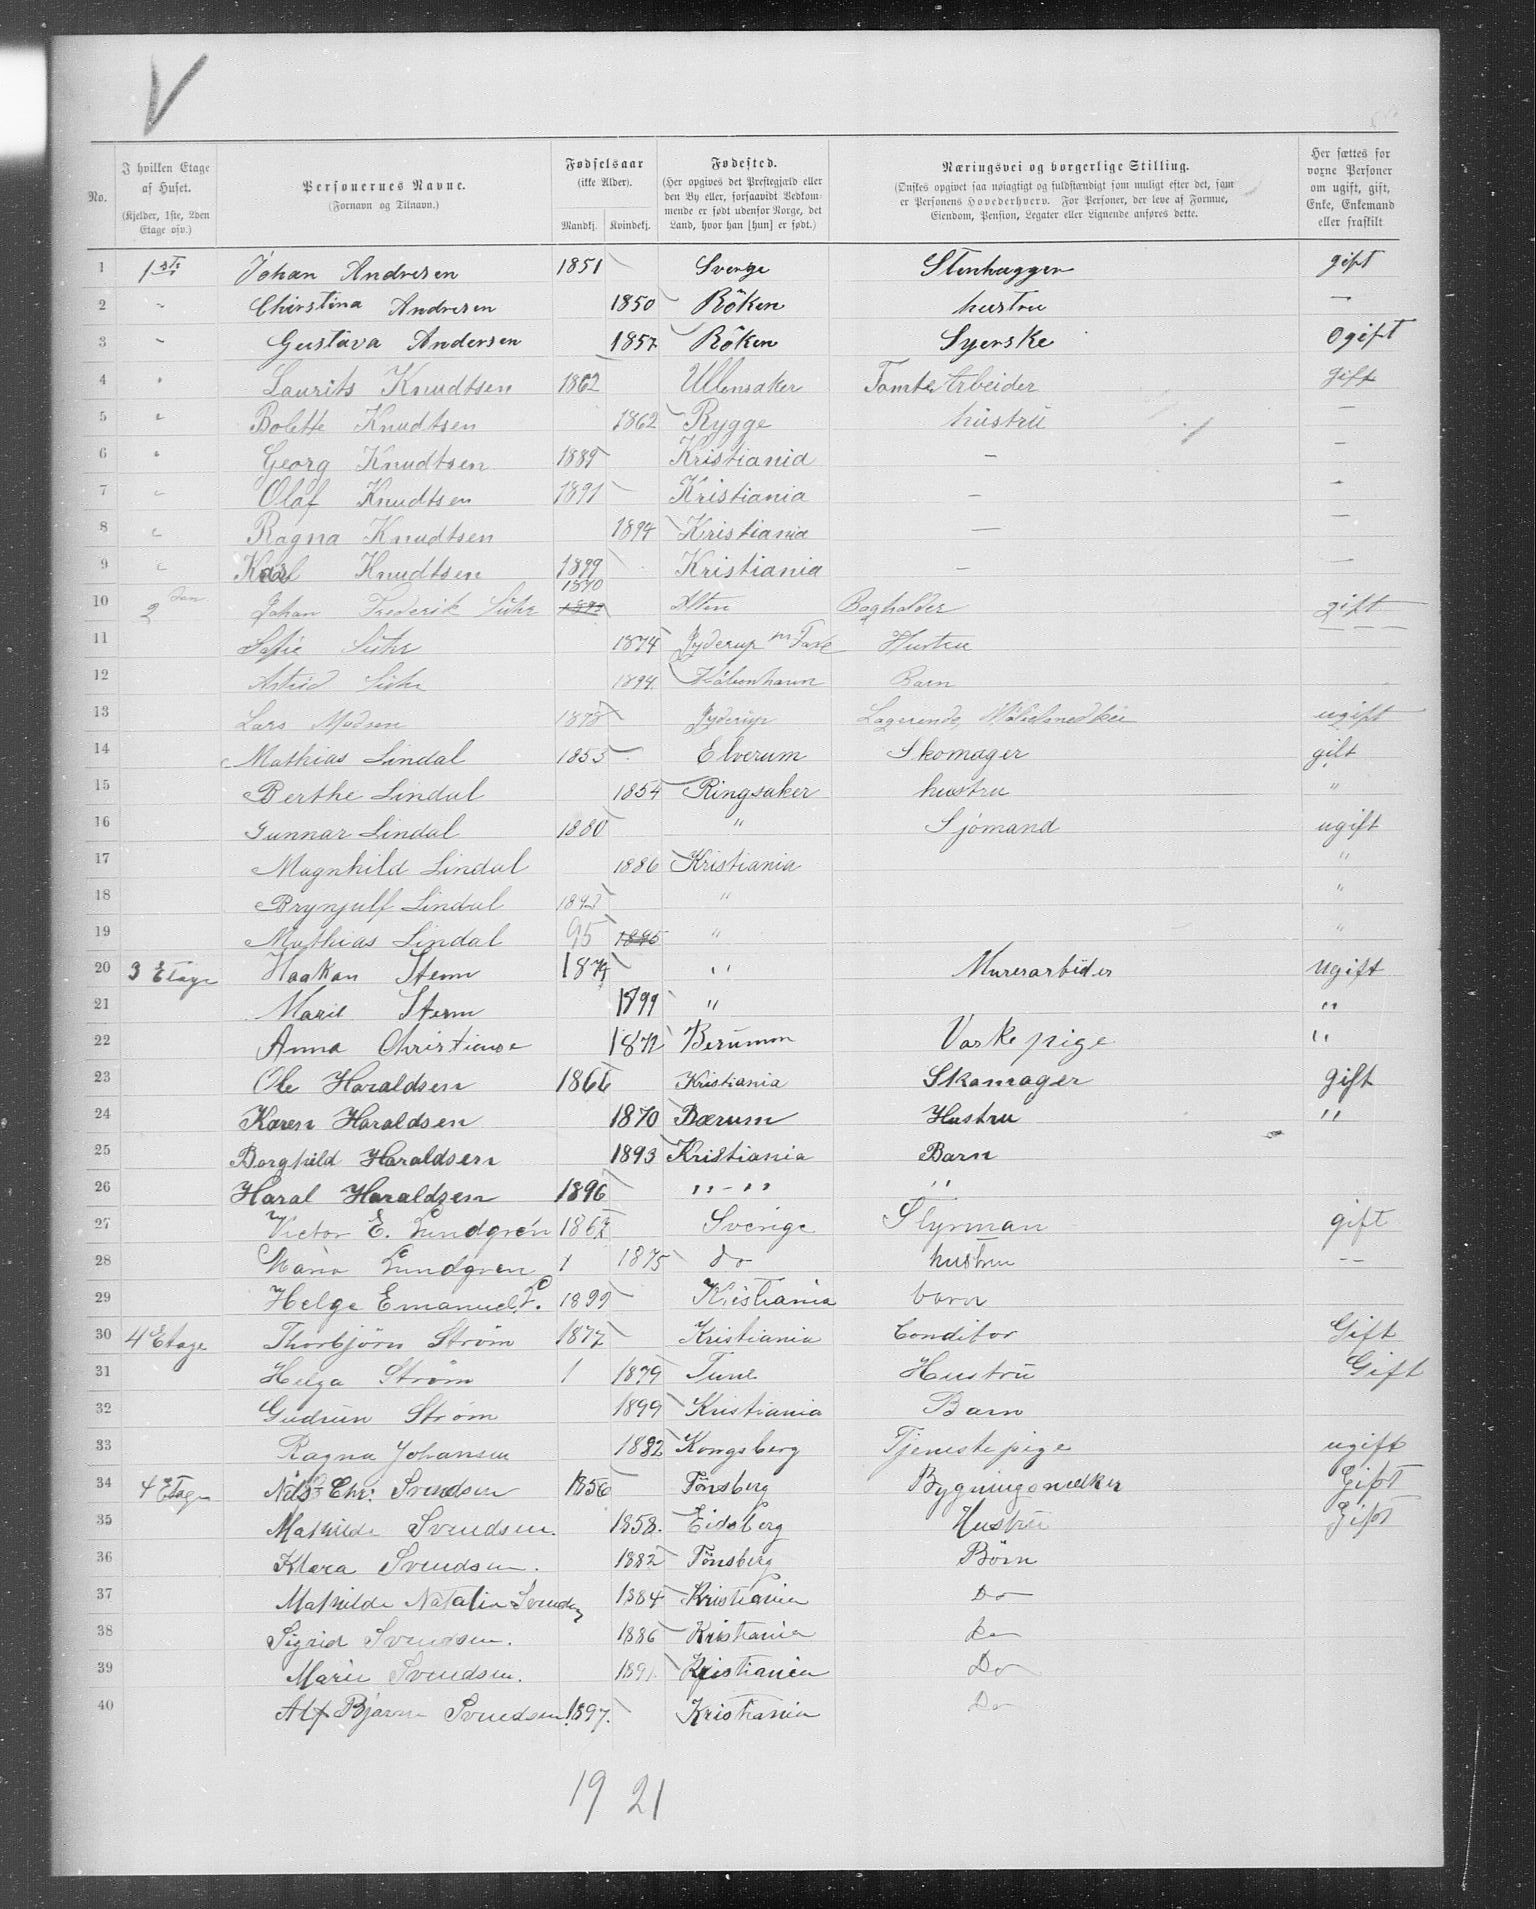 V
No.
I hvilken Etage af Huset. (Kjelder, 1ste, 2den Etage osv.)
Personernes Navne. (Fornavn og Tilnavn.)
Fødselsaar (ikke Alder). Mandkj. Kvindekj.
Fødested. (Her opgives det Prestegjæld eller den By eller, forsaavidt Bedkommende er født udenfor Norge, det Land, hvor han [hun] er født.)
Næringsvei og borgerlige Stilling. (Ønskes opgivet saa nøiagtigt og fuldstændigt som muligt efter det, som er Personens Hovederhverv. For Personer, der leve af Formue, Eiendom, Pension, Legater eller Lignende anføres dette.
Her sættes for voxne Personer om ugift, gift, Enke, Enkemand eller fraskilt
1 1ste Johan Andresen 1851 Sverge Stenhugger gift
2 " Chirstina Andresen 1850 Röken hustru —
3 " Gustava Andersen 1857 Röken Syerske Ogift
4 " Laurits Knudtsen 1862 Ullensaker Tomte Arbeider gift
5 " Bolette Knudtsen 1862 Rygge hustru —
6 " Georg Knudtsen 1889 Kristiania — —
7 " Olaf Knudtsen 1891 Kristiania — —
8 " Ragna Knudtsen 1894 Kristiania — —
9 " Karl Knudtsen 1899 Kristiania — —
10 2den Johan Frederik Suhr 1870 Alten Bogholder gift
11 Sofie Suhr 1874 Jyderup Hustru —
12 Astrid Suhr 1894 København Barn
13 Lars Madsen 1878 Jyderup ugift
14 Mathias Lindal 1853 Elverum Skomager gift
15 Berthe Lindal 1854 Ringsaker hustru "
16 Gunnar Lindal 1880 " Sjömand ugift
17 Magnhild Lindal 1886 Kristiania "
18 Brynjulf Lindal " "
19 Mathias Lindal 95 1895 " "
20 3 Etage Haakon Stenn " Murerarbeider ugift
21 Marie Stenn 1899 " "
22 Anna Christianse 1872 Berumon Vaskepige "
23 Ole Haraldsen 1866 Kristiania Skomager gift
24 Karen Haraldsen 1870 Bærum Hustru "
25 Borghild Haraldsen 1893 Kristiania Barn
26 Haral Haraldsen 1896 " - " "
27 Victor E. Lundgrén Sverige Styrman gift
28 Maria Lundgren 1 1875 do hustru --
29 Helge Emanuel L. 1899 Kristiania barn
30 4 Etage Thorbjörn Ström 1877 Kristiania Conditor Gift
31 Helga Ström 1 1879 Tune Hustru Gift
32 Gudrun Strøm 1899 Kristiania Barn
33 Ragna Johansen 1882 Kongsberg Tjenestepige ugift
34 4 Etage Nils Chr. Svendsen 1856 Tönsberg Bygningsnedker Gift
35 Mathilde Svendsen. 1858. Eidsberg Hustru Gift
36 Klara Svendsen. 1882 Tönsberg Börn
37 Mathilde Natalia Svendsen 1884 Kristiania Do
38 Sigrid Svendsen. 1886 Kristiania Do
39 Marie Svendsen. 1891. Kristiania Do
40 Alf Bjarne Svendsen. 1897. Kristiania Do
19 21